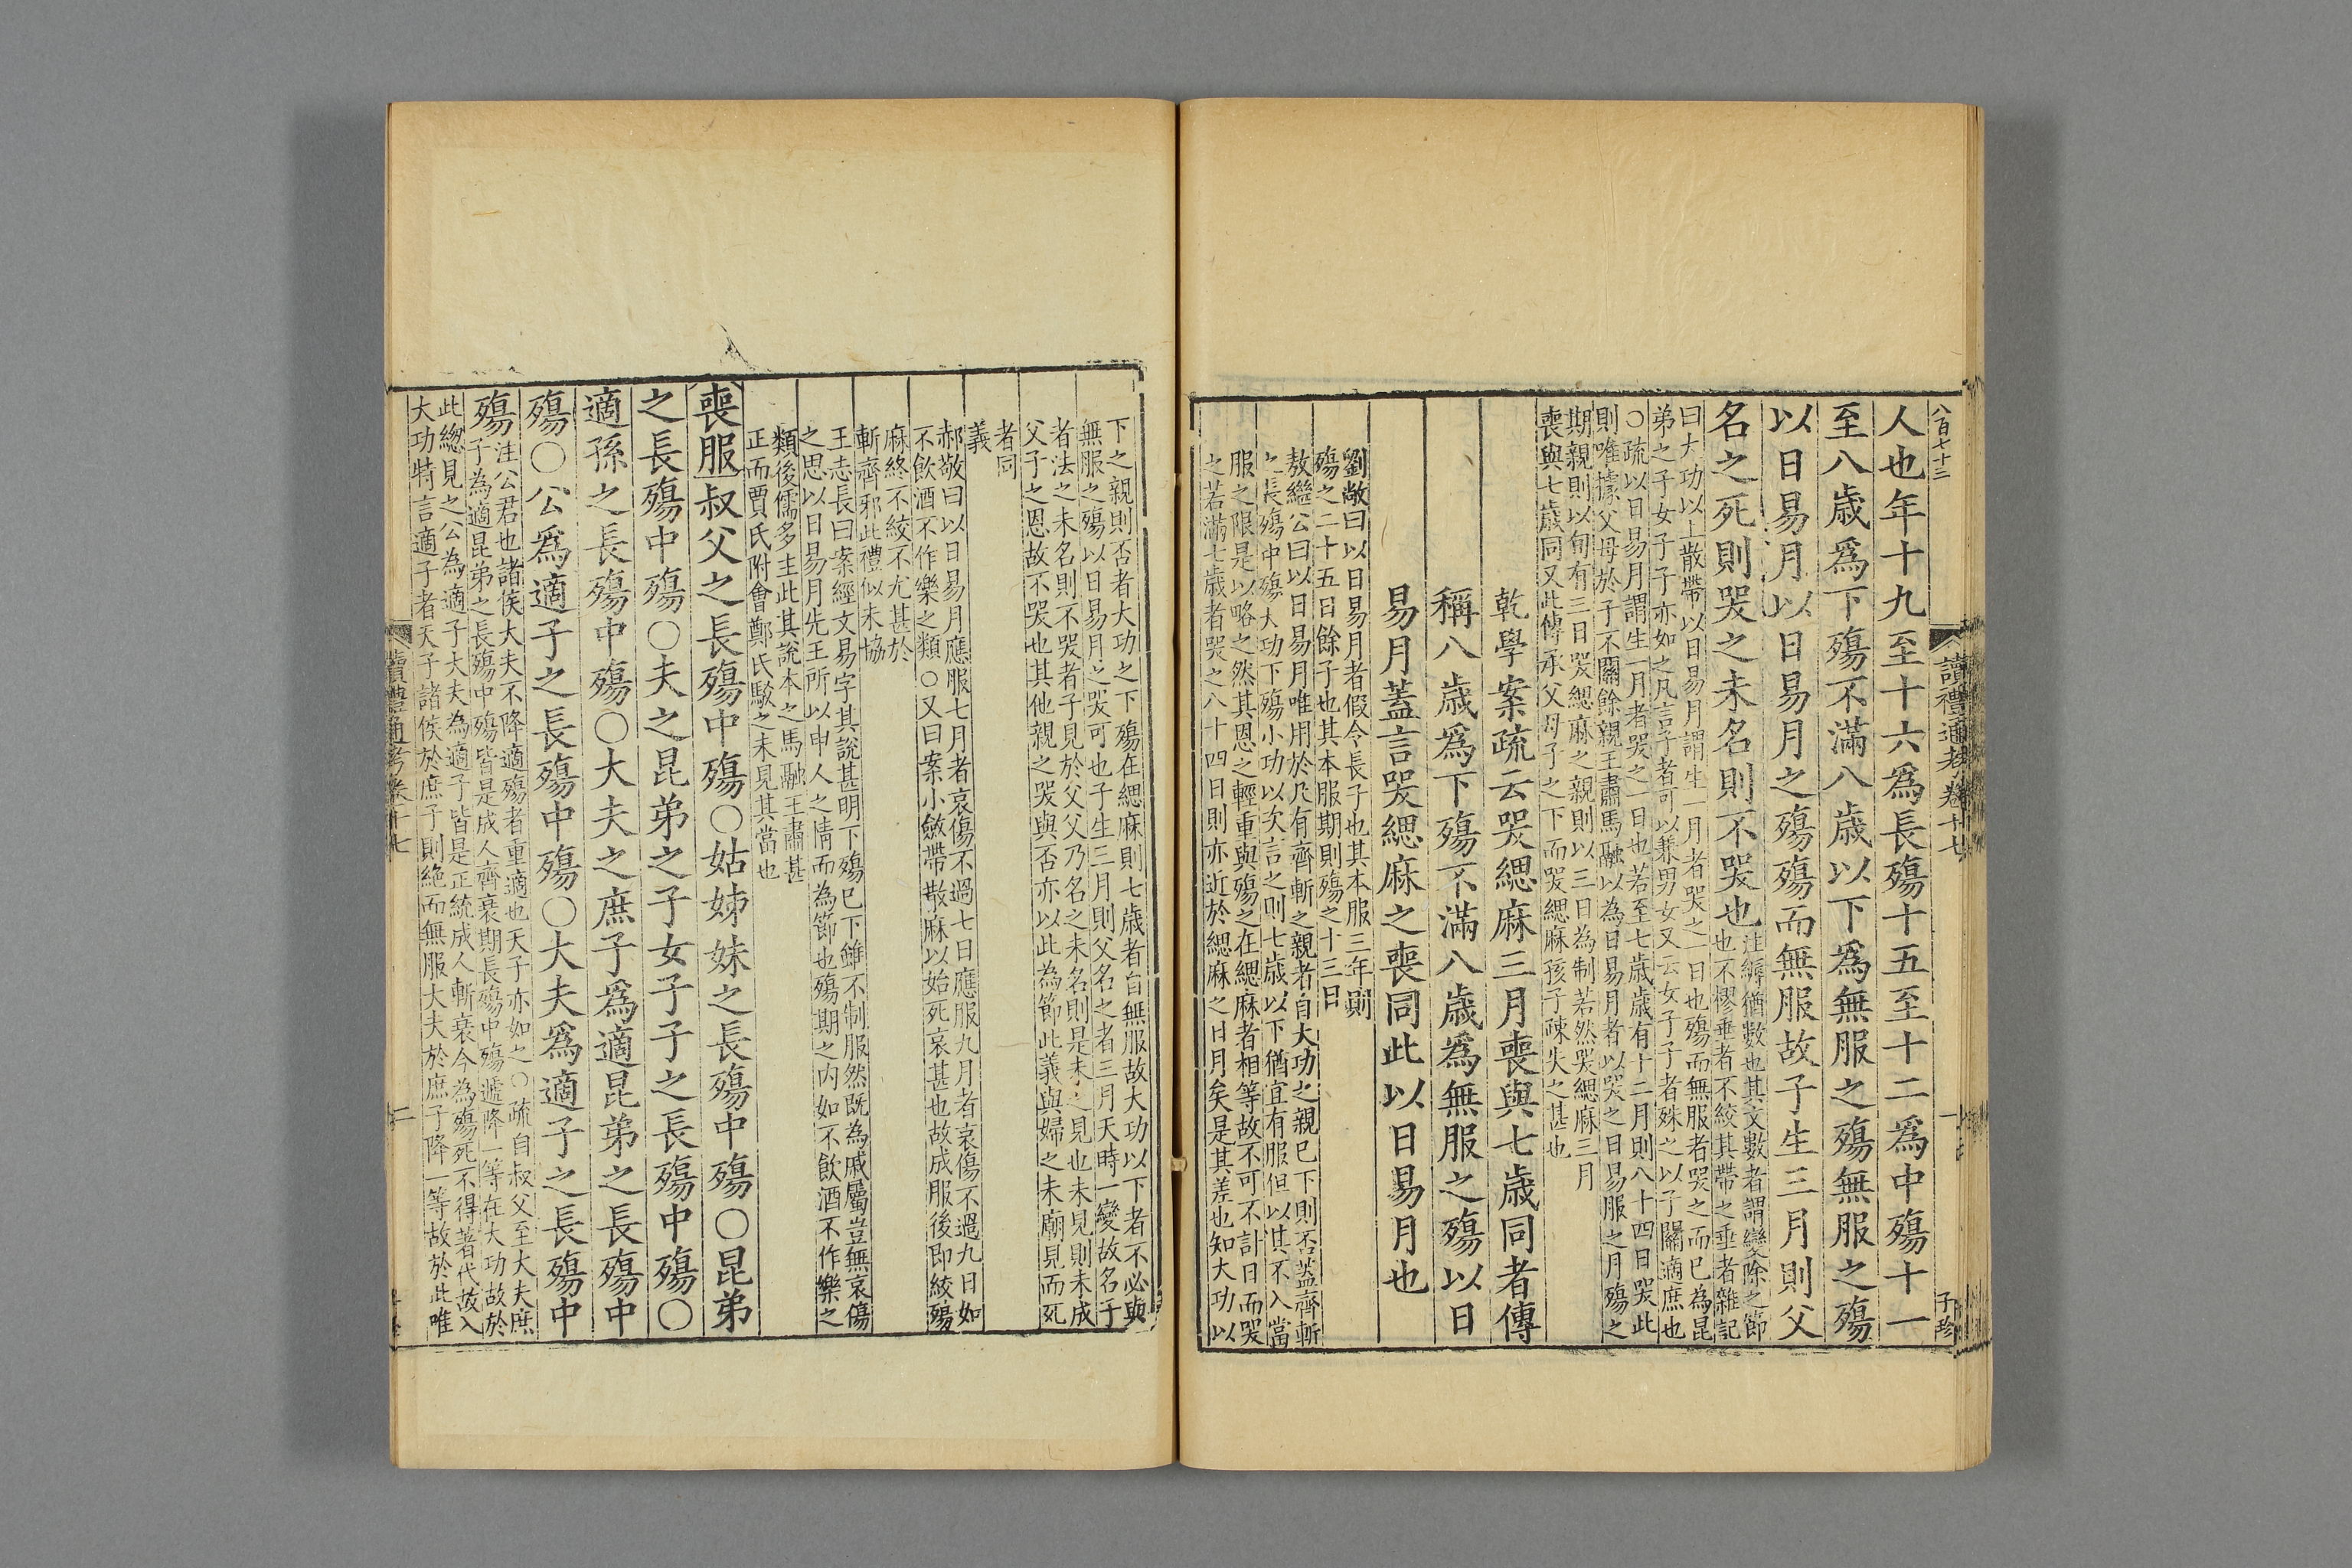 八百七十三
讀禮通考卷十七
一
子珍
人也年十九至十六爲長殤十五至十二爲中殤十一
至八歲爲下殤不滿八歲以下爲無服之殤無服之殤
以日易月以日易月之殤殤而無服故子生三月則父
名之死則哭之未名則不哭也
注縟猶數也其文數者謂變除之節
也不樛垂者不絞其帶之垂者雜記
曰大功以上散帶以日易月謂生一月者哭之一日也殤而無服者哭之而已為昆
弟之子女子子亦如之凡言子者可以兼男女又云女子子者殊之以子關適庶也
○疏以日易月謂生一月者哭之一日也若至七歲歲有十二月則八十四日哭此
則唯據父母於子不關餘親王肅馬融以為日易月者以哭之日易服之月殤之
期親則以旬有三日哭緦麻之親則以三日為制若然哭緦麻三月
喪與七歲同又此傳承父母子之下而哭緦麻孩子疎失之甚也
乾學案疏云哭緦麻三月喪與七歲同者傳
稱八歲爲下殤不滿八歲爲無服之殤以日
易月蓋言哭緦麻之喪同此以日易月也
劉敞曰以日易月者假令長子也其本服三年則
殤之二十五日餘子也其本服期則殤之十三日
敖繼公曰以日易月唯用於凡有齊斬之親者自大功之親已下則否蓋齊斬
之長殤中殤大功下殤小功以次言之則七歲以下猶宜有服但以其不入當
服之限是以略之然其恩之輕重與殤之在緦麻者相等故不可不計日而哭
之若滿七歲者哭之八十四日則亦近於緦麻之日月矣是其差也知大功以
下之親則否者大功之下殤在緦麻則七歲者自無服故大功以下者不必與
無服之殤以日易月之哭可也子生三月則父名之者三月天時一變故名子
者法之未名則不哭者子見於父父乃名之未名則是未之見也未見則未成
父子之恩故不哭也其他親之哭與否亦以此為節此義與婦之未廟見而死
者同
義
郝敬曰以日易月應服七月者哀傷不過七日應服九月者哀傷不過九日如
不飲酒不作樂之類○又曰案小斂帶散麻以始死哀甚也故成服後即絞殤
麻終不絞不尤甚於
斬齊邪此禮似未協
王志長曰案經文易字其說甚明下殤已下雖不制服然既為戚屬豈無哀傷
之思以日易月先王所以申人之情而為節也殤期之內如不飲酒不作樂之
類後儒多主此其說本之馬融王肅甚
正而賈氏附會鄭氏駁之未見其當也
喪服叔父之長殤中殤○姑姊妹之長殤中殤○昆弟
之長殤中殤○夫之昆弟之子女子子之長殤中殤○
適孫之長殤中殤○大夫之庶子爲適昆弟之長殤中
殤○公爲適子之長殤中殤○大夫爲適子之長殤中
殤
注公君也諸侯大夫不降適殤者重適也天子亦如之○疏自叔父至大夫庶
子為適昆弟之長殤中殤皆是成人齊衰期長殤中殤遞降一等在大功故於
此總見之公為適子大夫為適子皆是正統成人斬衰今為殤死不得著代故入
大功特言適子者天子諸侯於庶子則絕而無服大夫於庶子降一等故於此唯
讀禮通考卷十七
二